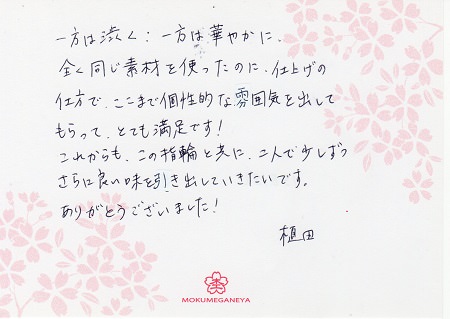 一方は渋く:一方は華やかに、
全く同じ素材を使ったのに、仕上げの
仕方で、ここまで個性的な雰囲気を出して
もらって、とても満足です!
これからも、この指輪と共に、二人で少しずつ
さらに良い味を引き出していきたいです。
ありがとうございました!
植田
MOKUMEGANEYA